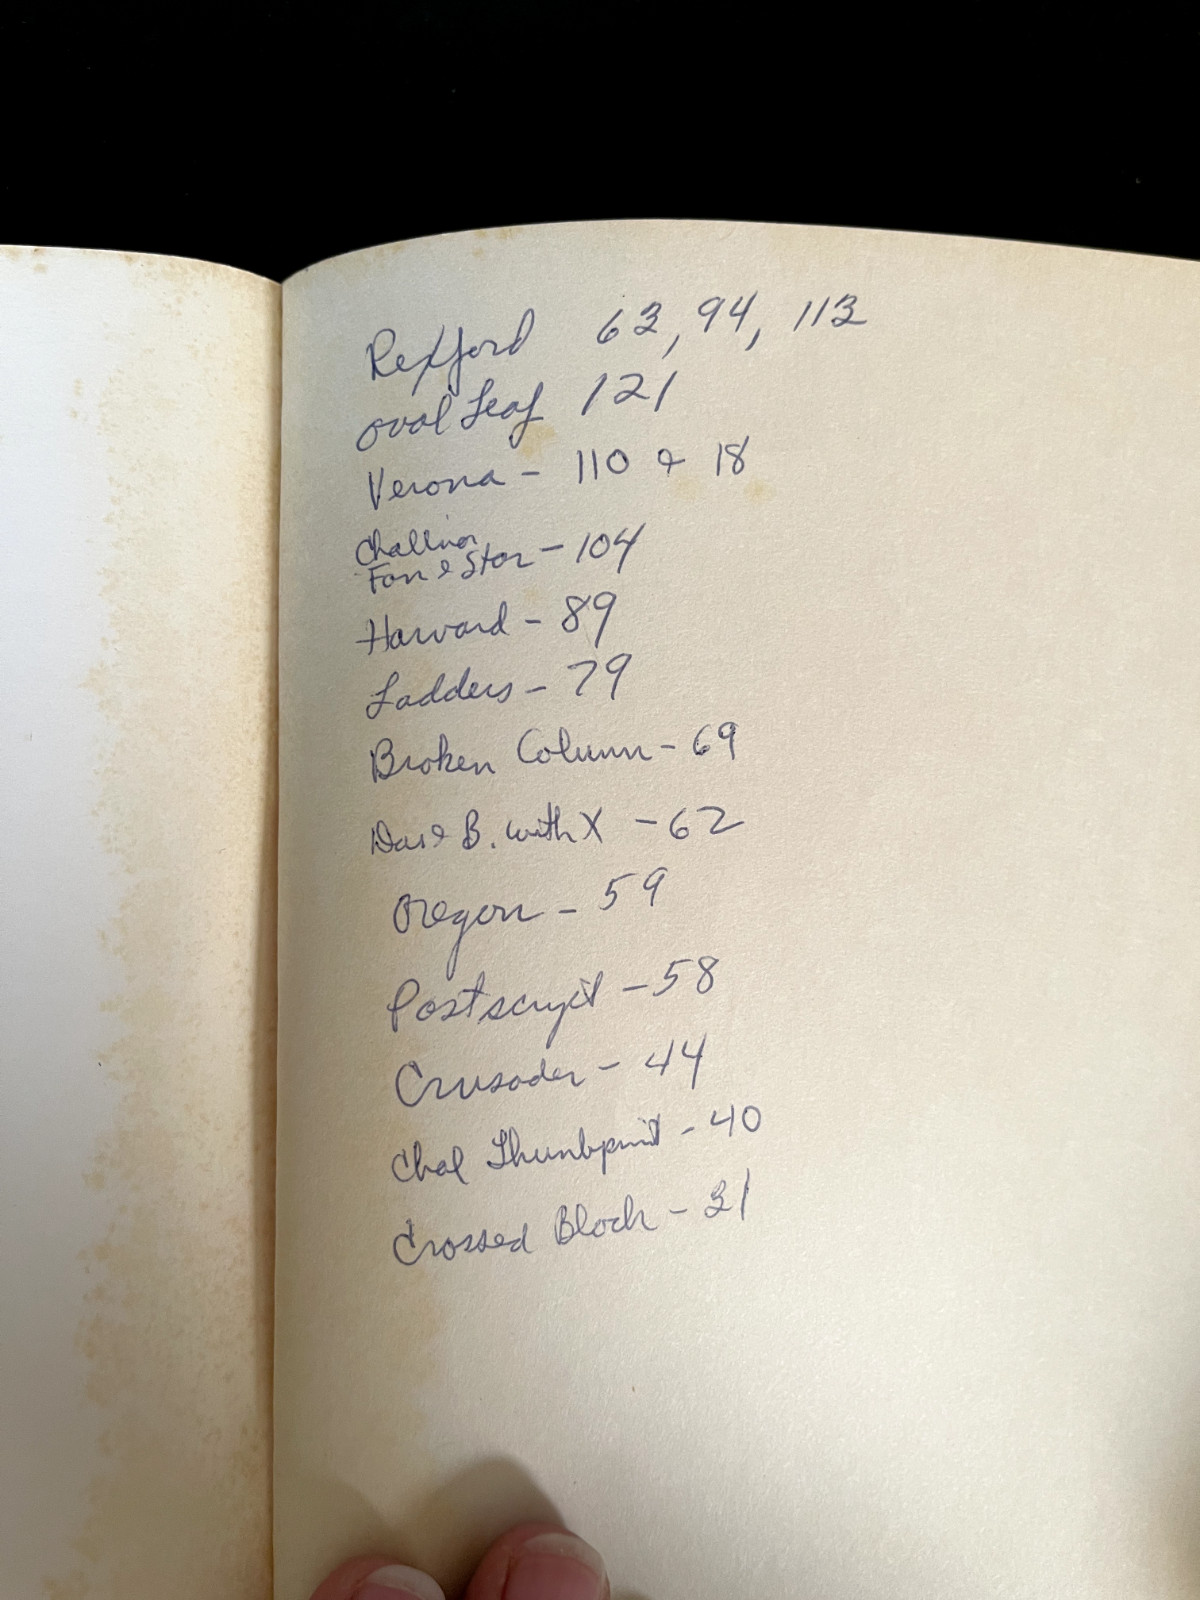 Rexford 63, 94, 113
Oval Leaf 121
Verona - 110 & 18
Challinor
Fan & Star - 104
Harvard - 89
Ladders - 79
Broken Column - 69
B. with X - 62
Oregon - 59
Postscript - 58
Crusader - 44
Chal Thumbprint - 40
Crossed Block - 31